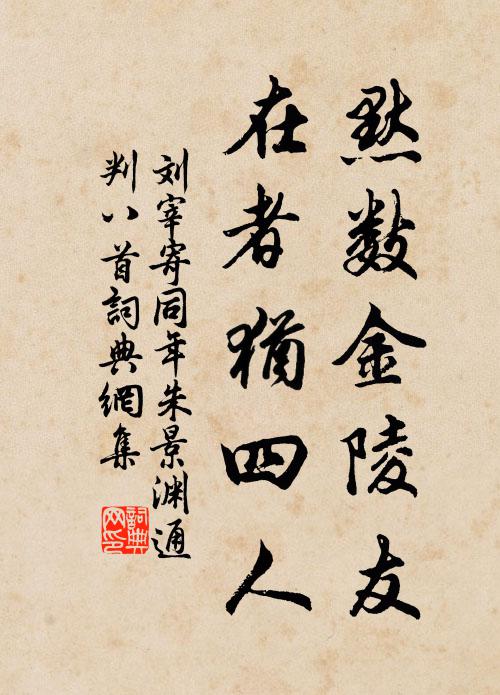 默数金陵友
在者犹四人
刘宰寄同年朱景渊通
判八首詞典網集
詞典网印